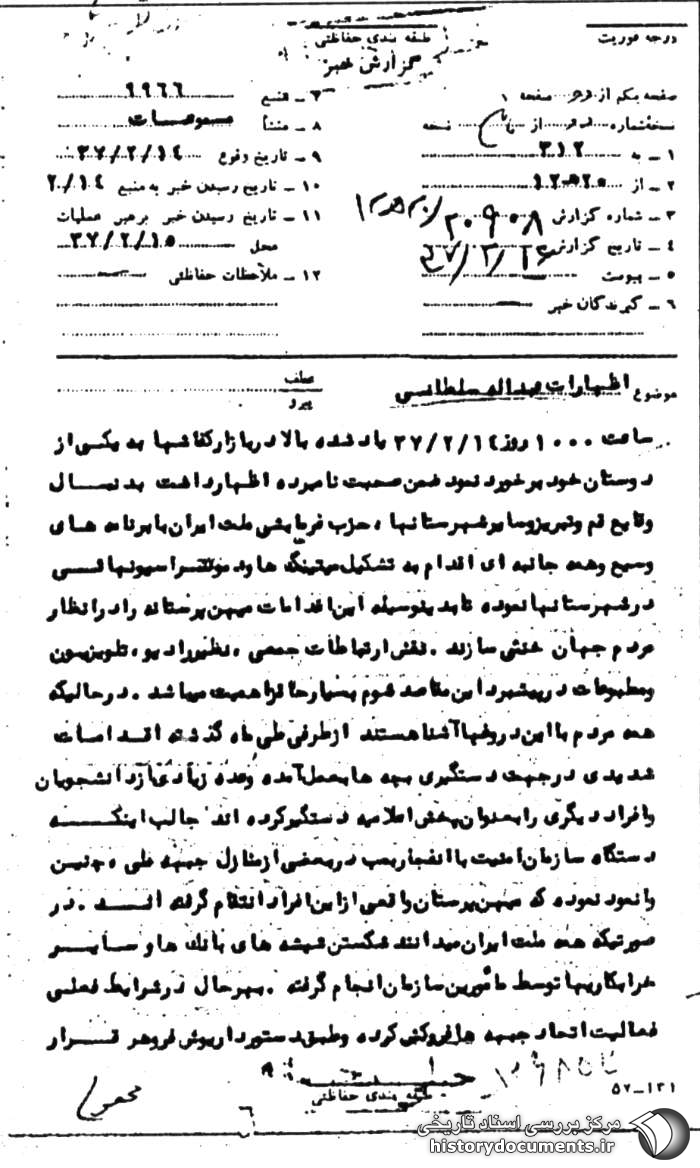 درجه فوریت
طبقه بندی حفاظتی
گزارش خبر
صفحه یکم از دو صفحه ۱
نسخهٔ شماره از نسخه
۱ – به ۳۱۲
۲ – از ۱۲۵۲۰
۳ – شماره گزارش ۲۰۹۰۸/
۴ – تاریخ گزارش ۳۷/۲/۱۶
۵ – پیوست
۶ – گیرندگان خبر
۷ – منبع ۹۹۶۶
۸ – منشأ مسموعات
۹ – تاریخ وقوع ۳۷/۲/۱۴
۱۰ – تاریخ رسیدن خبر به منبع ۲/۱۴
۱۱ – تاریخ رسیدن خبر برهبر عملیات
محل ۳۷/۲/۱۵
۱۲ – ملاحظات حفاظتی
موضوع اظهارات عبداله سلطانی
عطف
پیرو
ساعت ۱۰۰۰ روز ۳۷/۲/۱۴ یاد شده بالا در بازار کفاشها به یکی از
دوستان خود برخورد نمود ضمن صحبت نامبرده اظهار داشت بدنبال
وقایع قم و تبریز و سایر شهرستانها ، حزب فرمایشی ملت ایران با برنامه های
وسیع و همه جانبه ای اقدام به تشکیل میتینگ ها و دمونستراسیونهائی
در شهرستانها نموده تا بدینوسیله این اقدامات میهن پرستانه را در انظار
مردم جهان خنثی سازند . نقش ارتباطات جمعی ، نظیر رادیو ، تلویزیون
و مطبوعات در پیشبرد این مقاصد شوم بسیار حائز اهمیت میباشد . در حالیکه
همه مردم با این دروغها آشنا هستند از طرفی طی ماه گذشته اقدامات
شدیدی در جهت دستگیری بچه ها بعمل آمده وعده زیادی از دانشجویان
و افراد دیگری را بعنوان پخش اعلامیه دستگیر کرده اند جالب اینکه
دستگاه سازمان امنیت با انفجار بمب در بعضی از منازل جبهه ملی ، چنین
وانمود نموده که میهن پرستان واقعی از این افراد انتقام گرفته اند . در
صورتیکه همه ملت ایران میدانند شکستن شیشه های بانک ها و سایر
خرابکاریها توسط مأمورین سازمان انجام گرفته . بهر حال در شرایط فعلی
فعالیت اتحاد جبهه ها فروکش کرده و طبق دستور داریوش فروهر قرار
طبقه بندی حفاظتی
۵۷–۱۳۱
مرکز بررسی اسناد تاریخی
historydocuments.ir